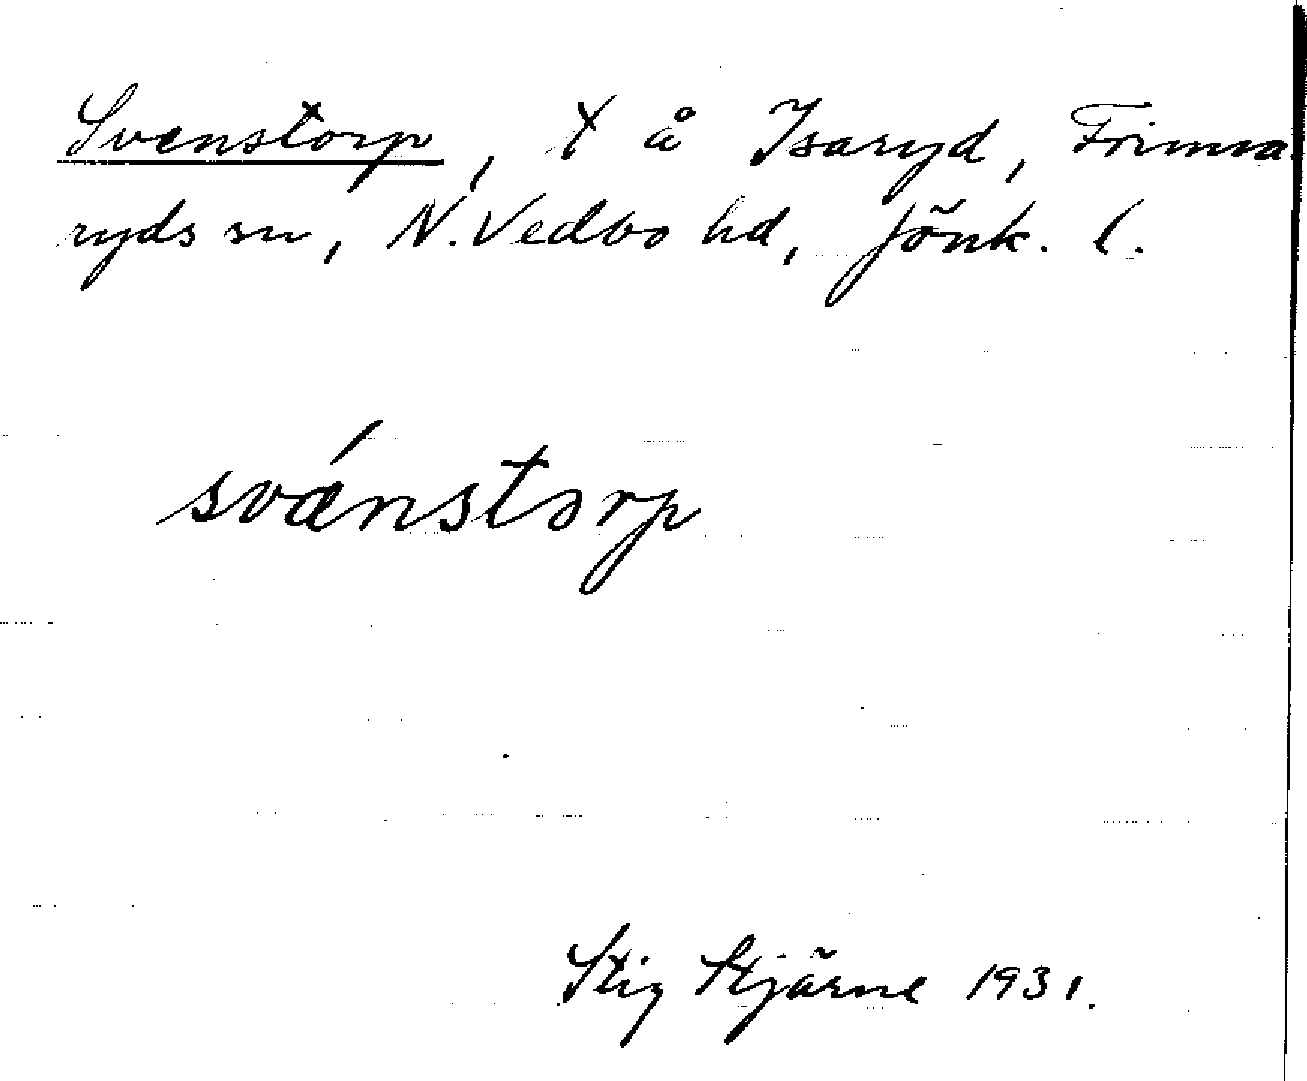 Svenstorp, t å Isaryd, Frinna
ryds sn, N. Vedbo hd, Jönk. l.
svǽnstorp
Stig Stjärne 1931.